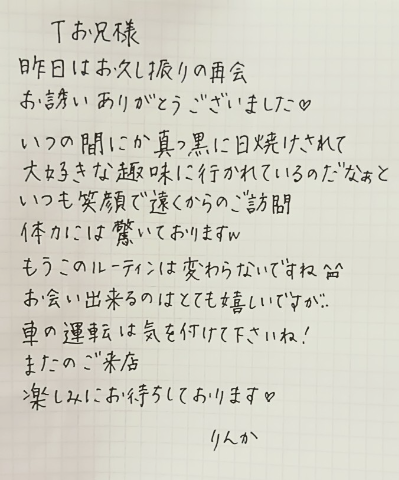 Tお兄様
昨日はお久し振りの再会
お誘いありがとうございました♡
いつの間にか真っ黒に日焼けされて
大好きな趣味に行かれているのだなぁと
いつも笑顔で遠くからのご訪問
体力には驚いておりますw
もうこのルーティンは変わらないですね
お会い出来るのはとても嬉しいですが..
車の運転は気を付けて下さいね!
またのご来店
楽しみにお待ちしております♡
りんか